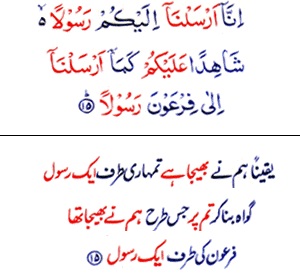 اِنَّاۤ اَرْسَلْنَاۤ اِلَیْكُمْ رَسُوْلًا ۙ۬
شَاهِدًا عَلَیْكُمْ كَمَاۤ اَرْسَلْنَاۤ
اِلٰی فِرْعَوْنَ رَسُوْلًا ؕ﴿۱۵﴾
یقیناً ہم نے بھیجا ہے تمہاری طرف ایک رسول
گواہ بنا کر تم پر جس طرح ہم نے بھیجا تھا
فرعون کی طرف ایک رسول ﴿۱۵﴾